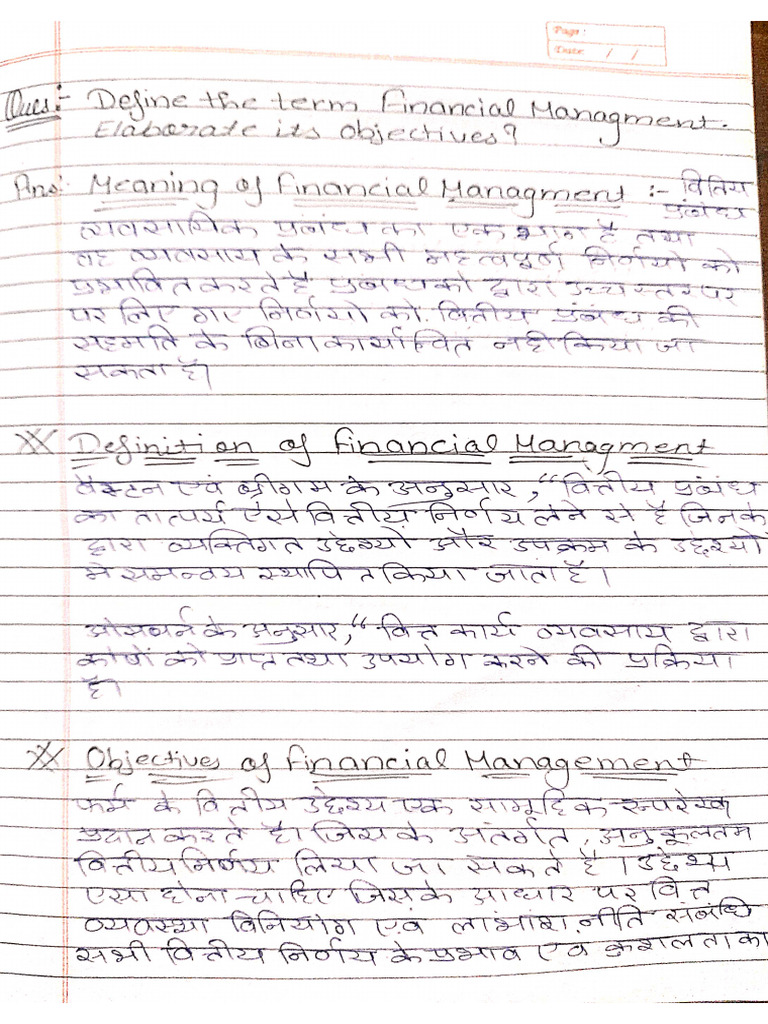 Page:
Date: / /
Ques:- Define the term Financial Managment.
Elaborate its objectives?
Ans: Meaning of Financial Managment :- वित्तिय
प्रबंधन
व्यवसायिक प्रबंधन का एक भाग है तथा
यह व्यवसाय के सभी महत्वपूर्ण निर्णयो को
प्रभावित करते है प्रबंधको द्वारा उच्च स्तर पर
पर लिए गए निर्णयो को वित्तीय प्रबंध की
सहमति के बिना कार्यान्वित नही किया जा
सकता है।
Definition of Financial Managment
वैस्टन एवं ब्रीगम के अनुसार, "वित्तीय प्रबंध
का तात्पर्य ऐसे वित्तीय निर्णय लेने से है जिनके
द्वारा व्यक्तिगत उद्देश्यो और उपक्रम के उद्देश्यो
मे समन्वय स्थापित किया जाता है।
ओसबर्न के अनुसार, "वित्त कार्य व्यवसाय द्वारा
कोषों को प्राप्त तथा उपयोग करने की प्रक्रिया
है।
Objectives of Financial Management
फर्म के वित्तीय उद्देश्य एक सामूहिक रूपरेखा
प्रदान करते है। जिस के अंतर्गत, अनुकूलतम
वित्तीय निर्णय लिया जा सकते है । उद्देश्य
एसा होना चाहिए जिसके आधार पर वित्त
व्यवस्था विनियोग एवं लाभांश नीति संबंधि
सभी वित्तीय निर्णय के प्रभाव एव कुशलता का